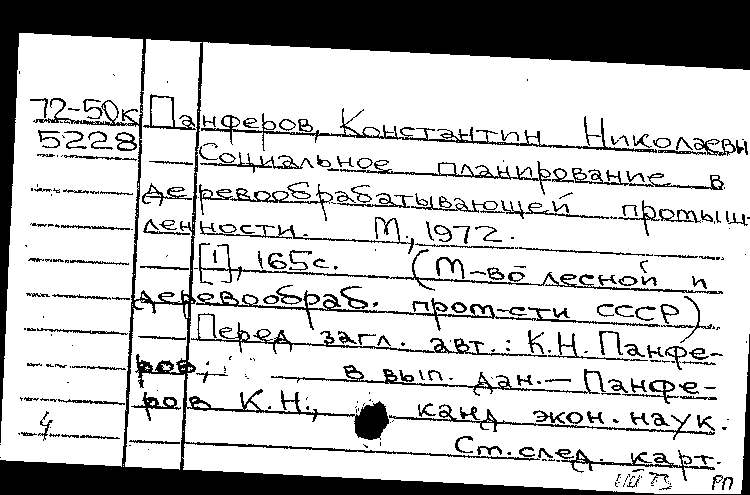 72-50к Панферов, Константин Николаеви
5228 Социальное планирование в
деревообрабатывающей промыш-
ленности. М., 1972.
[1], 165с. (М-во лесной и
деревообраб. пром-сти СССР)
Перед загл. авт.: К.Н. Панфе-
ров; в вып. дан. — Панфе-
ров К.Н., канд экон. наук.
4 Ст. след. карт.
РП